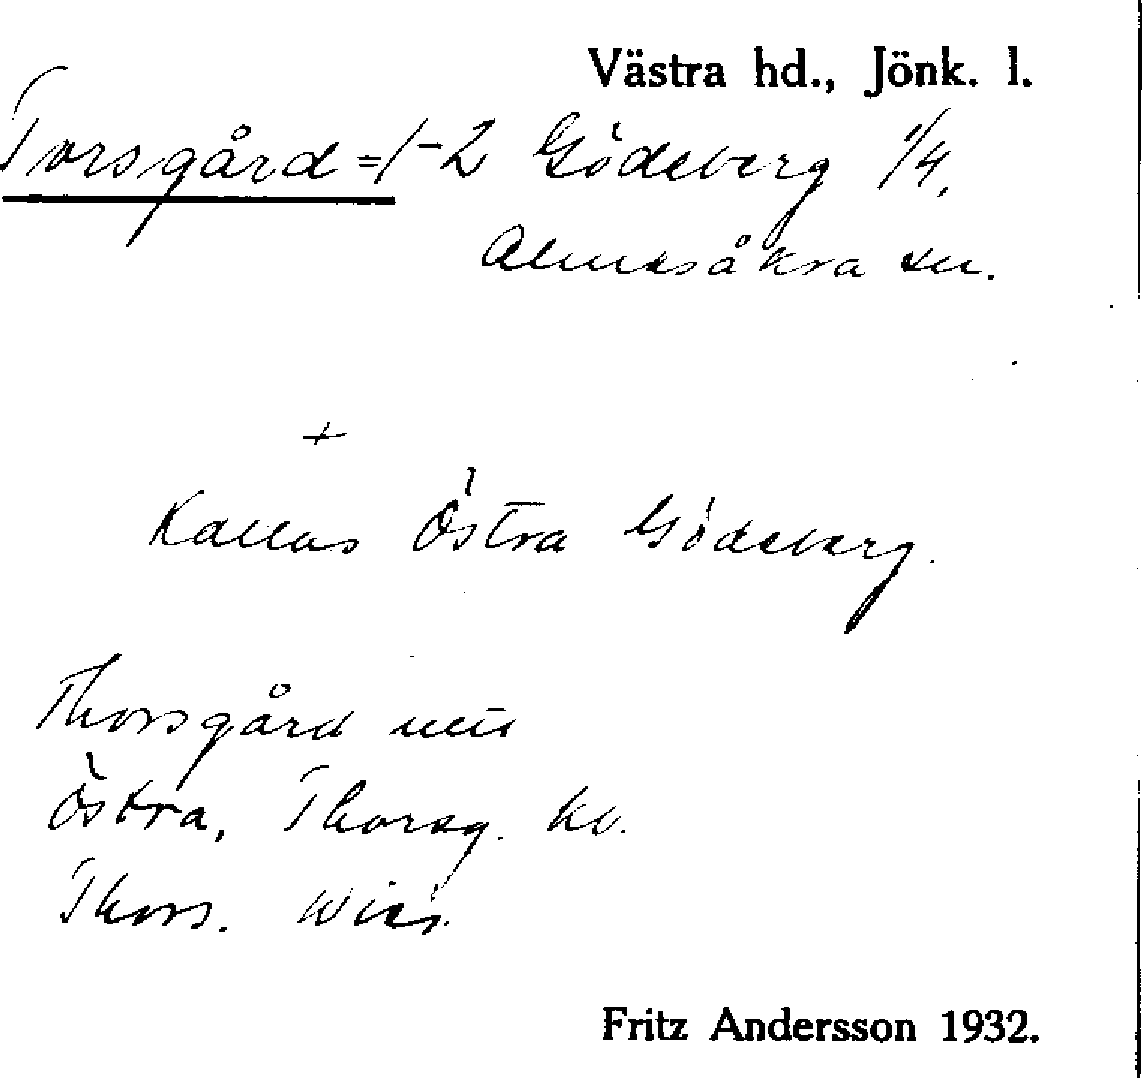 Västra hd., Jönk. l.
Torsgård =1-2 Gödeberg 1/4,
Almesåkra sn.
+
Kallas Östra Gödeberg.
Thorsgård
Östra, Thorsg. kv.
Thors.
Fritz Andersson 1932.